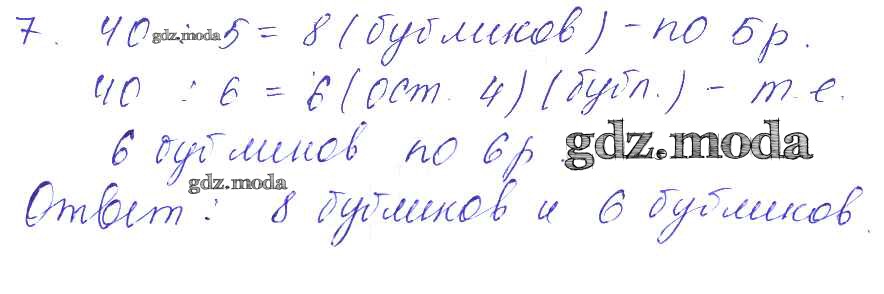 7. 40 : 5 = 8 (бубликов) - по 5 р.
gdz.moda
40 : 6 = 6 (ост. 4) (бубл.) - т.е.
6 бубликов по 6 р.
gdz.moda
gdz.moda
Ответ: 8 бубликов и 6 бубликов.